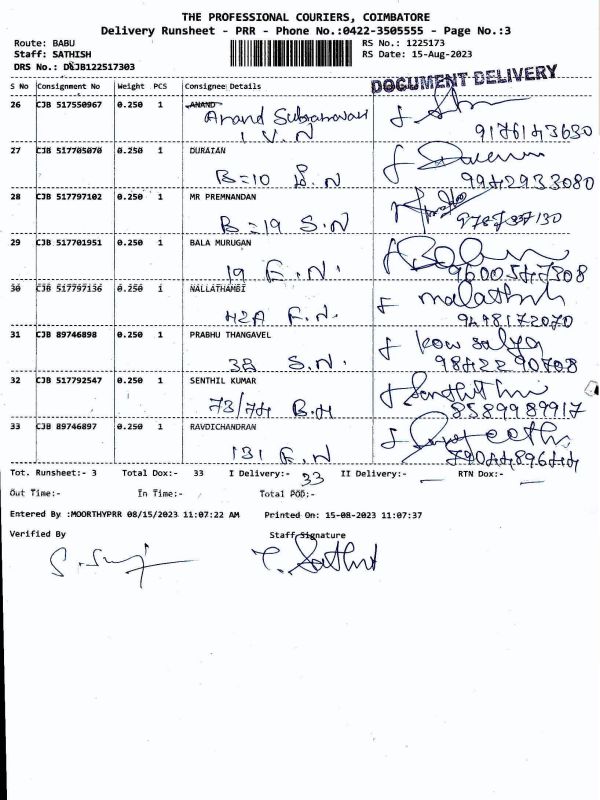 THE PROFESSIONAL COURIERS, COIMBATORE
Delivery Runsheet - PRR - Phone No.:0422-3505555 - Page No.:3
Route: BABU
RS No.: 1225173
Staff: SATHISH
RS Date: 15-Aug-2023
DRS No.: DCJB122517303
DOCUMENT DELIVERY
S No Consignment No Weight PCS Consignee Details
26 CJB 517550967 0.250 1 ANAND
Anand
I V.N
9176143630
27 CJB 517705070 0.250 1 DURAIAN
B=10 S.N
9942933080
28 CJB 517797102 0.250 1 MR PREMNANDAN
B=19 S.N
29 CJB 517701951 0.250 1 BALA MURUGAN
19 F.N.
30 CJB 517797136 0.250 1 NALLATHAMBI
malathi
42A F.N.
9498172070
31 CJB 89746898 0.250 1 PRABHU THANGAVEL
kowsalya
38 S.N.
98422 90708
32 CJB 517792547 0.250 1 SENTHIL KUMAR
73/74 B.H
8589989917
33 CJB 89746897 0.250 1 RAVDICHANDRAN
131 F.N
Tot. Runsheet:- 3 Total Dox:- 33 I Delivery:- 33 II Delivery:- RTN Dox:-
Out Time:- In Time:- Total POD:-
Entered By :MOORTHYPRR 08/15/2023 11:07:22 AM Printed On: 15-08-2023 11:07:37
Verified By Staff Signature